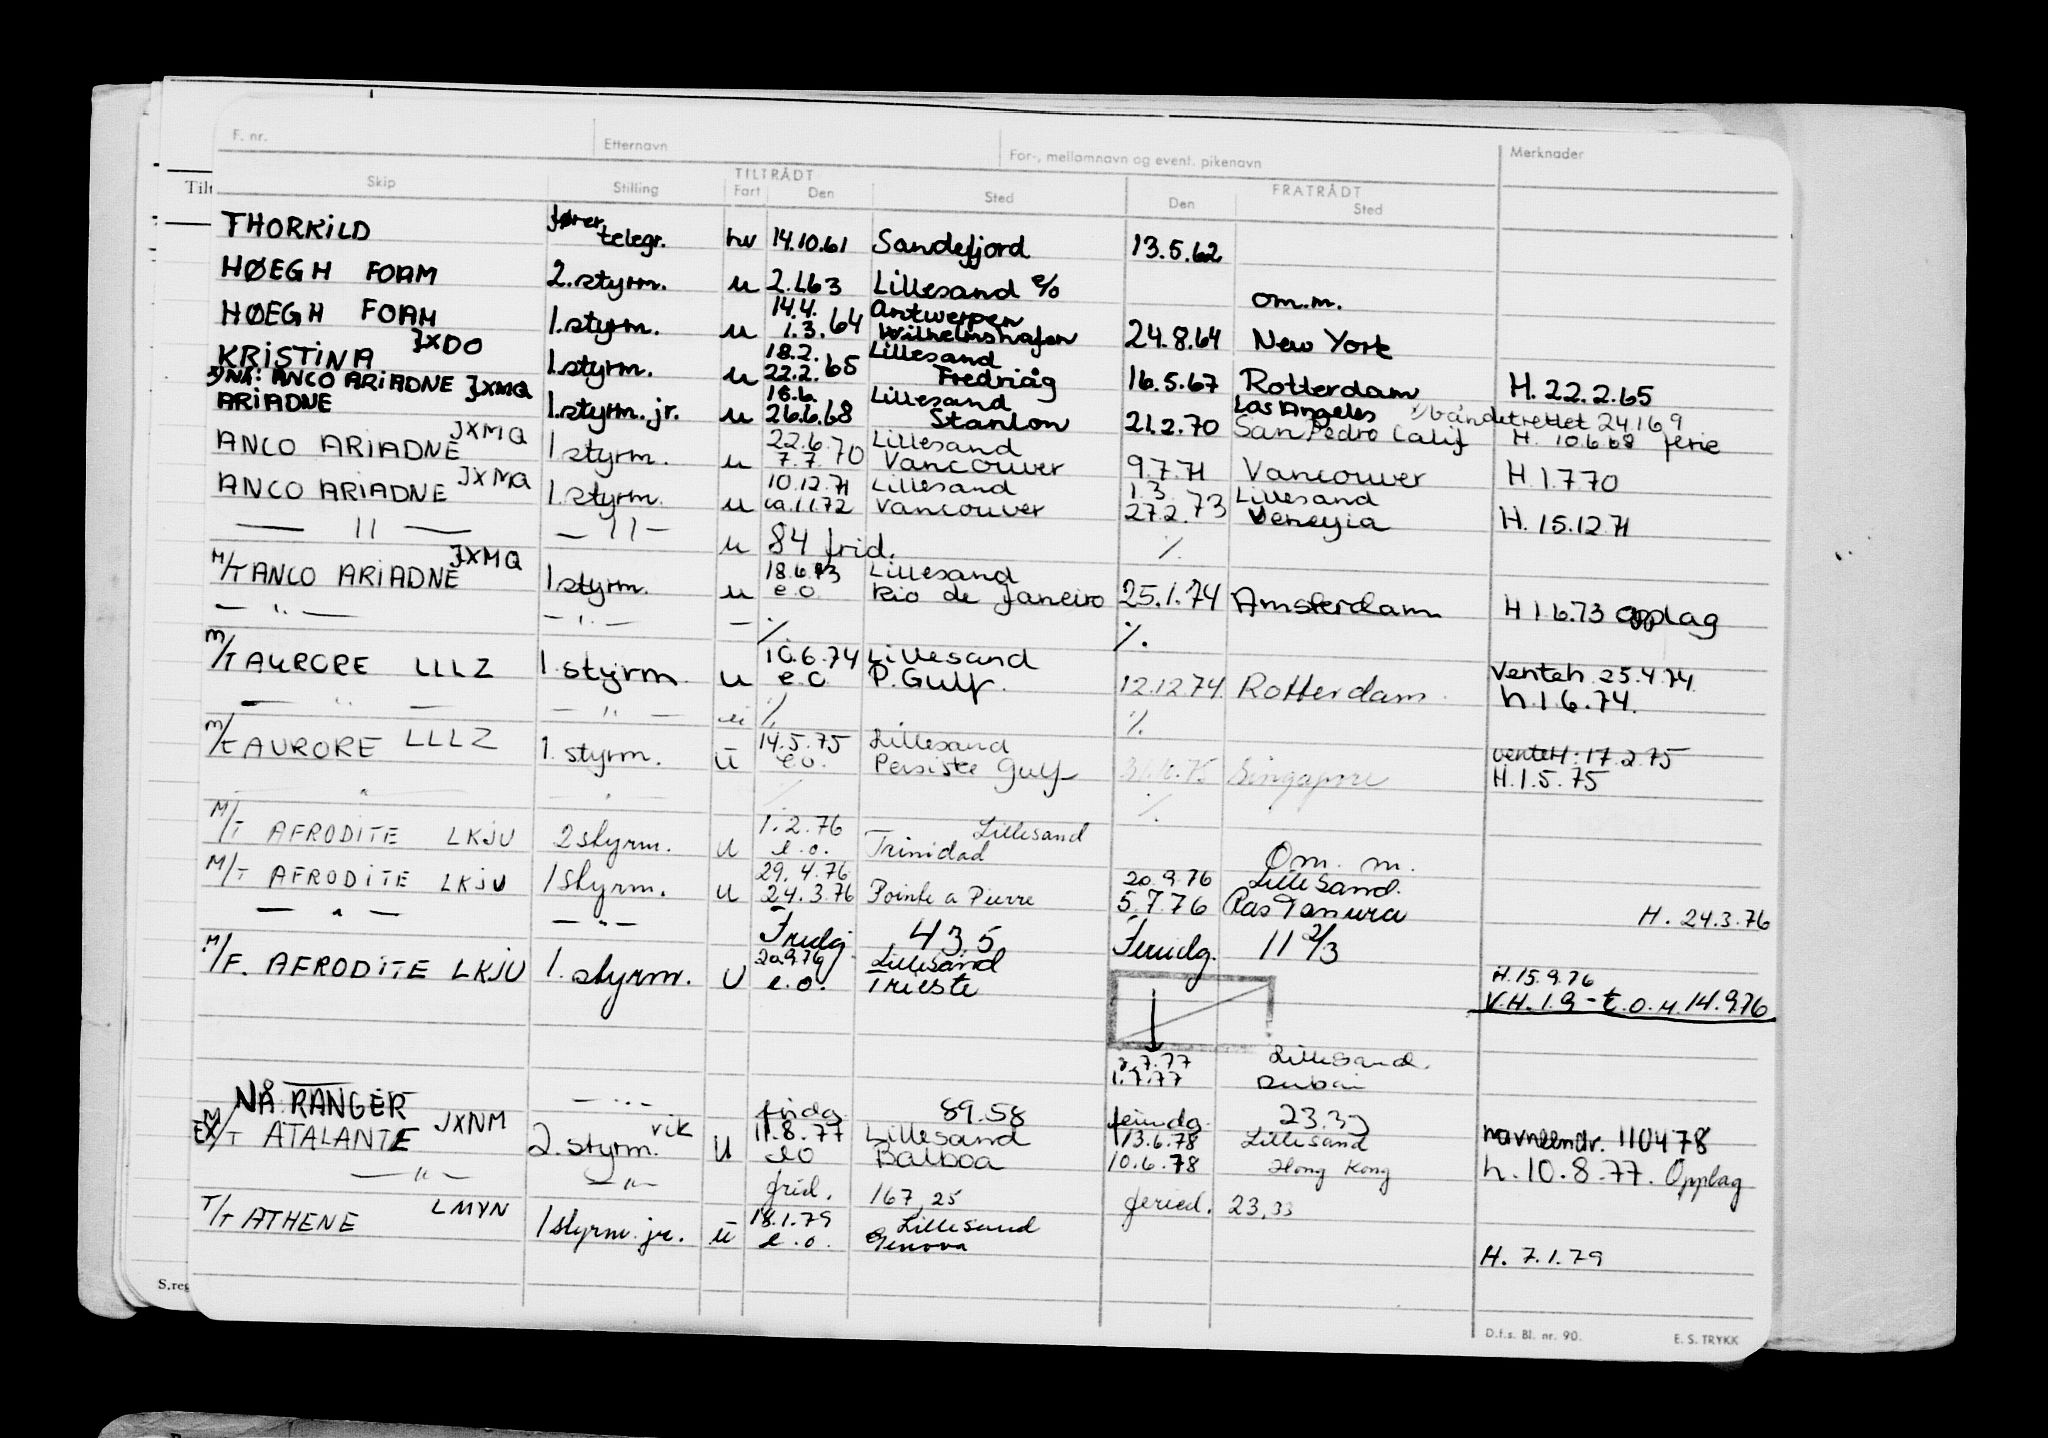 F. nr. Etternavn For-, mellomnavn og event. pikenavn Merknader
Skip Stilling TILTRÅDT Fart Den Sted FRATRÅDT Den Sted
THORKILD fører telegr. hv 14.10.61 Sandefjord 13.5.62
HØEGH FOAM 2.styrm. u 2.1.63 Lillesand e/o om.m.
HØEGH FOAM 1.styrm. u 14.4. 1.3. 64 Antwerpen Wilhelmshafen 24.8.64 New York
KRISTINA JXDO 1.styrm. u 18.2. 22.2. 65 Lillesand 16.5.67 Rotterdam H. 22.2.65
NÅ: ANCO ARIADNE JXMQ
ARIADNE 1.styrm. jr. u 26.6.68 Lillesand Stanlon 21.2.70 Los Angeles San Pedro Calif H. 10.6.68 ferie
ANCO ARIADNE JXMQ 1styrm. u 22.6. 7.7. 70 Lillesand Vancouver 9.7.71 Vancouver H 1.7.70
ANCO ARIADNE JXMQ 1.styrm. u 10.12.71 ca.1.1.72 Lillesand Vancouver 1.3. 27.2. 73 Lillesand H. 15.12.71
— 11 — — 11 — u 84 frid. %
M/T ANCO ARIADNE JXMQ 1styrm. u 18.6.73 e.o. Lillesand Rio de Janeiro 25.1.74 Amsterdam H 1.6.73 opplag
— " — — " — — % %.
M/T AURORE LLLZ 1.styrm. u 10.6.74 e.o. Lillesand P.Gulf. 12.12.74. Rotterdam. Venteh. 25.4.74. h.1.6.74.
— " — — " — u % %
M/T AURORE LLLZ 1. styrm. u 14.5.75 e.o. Lillesand Persiske Gulf Singapore venteH: 17.2.75
H.1.5.75
" " % %
M/T AFRODITE LKJU 2styrm. u 1.2.76 e.o. Lillesand Trinidad Om. m.
M/T AFRODITE LKJU 1styrm. u 29.4.76 24.3.76 Pointe a Pierre 20.9.76 5.7.76 Lillesand. Ras Tanura H. 24.3.76
— " — — " — Fridg. 43,5 Feridg. 11 2/3
M/F. AFRODITE LKJU 1.styrm. U 20.9.76 e.o. Lillesand Trieste H.15.9.76
V.H. 1.9 - t.o.m. 14.9.76
3.7.77 Lillesand.
1.7.77 Dubai
NÅ RANGER — " — fridg 89.58 feridg. 23.33
EX M/T ATALANTE JXNM 2.styrm. vik U 11.8.77 eo Lillesand Balboa 13.6.78 10.6.78 Lillesand Hong Kong navneendr. 110478
h.10.8.77. Opplag
— " — — " — frid. 167,25 feried. 23,33
T/T ATHENE LMYN 1styrm. jr. u 18.1.79 e.o. Lillesand Genova H. 7.1.79
S.reg
D.f.s. Bl. nr. 90. E. S. TRYKK